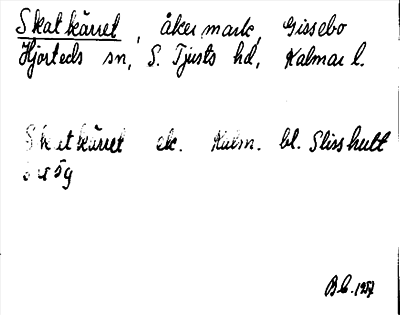 Skatkärret, åkermark, Gissebo
Hjorteds sn, S. Tjusts hd, Kalmar l.
Skatkärret ek. Kalm. bl. Slisshult
5g
1957